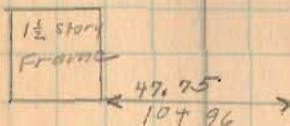 1½ Story
Frame
47.75
10+96